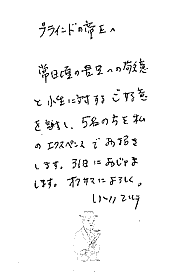 ブラインドの帝王へ
常日頃の君への敬意
と小生に対するご好意
を謝し、5名の方を私
のエクスペンスでお招き
します。31日におじゃま
します。オクサマによろしく。